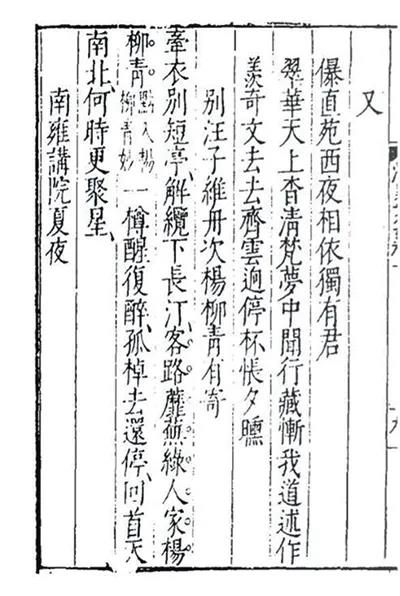 又
儤直苑西夜相依獨有君
翠華天上杳清梵夢中聞行藏慚我道述作
羨奇文去去齊雲逈停杯悵夕曛
別汪子維舟次楊柳青有寄
牽衣別短亭、解纜下長汀、客路蘼蕪綠人家楊
柳青點入楊柳青妙一樽醒復醉、孤棹去還停、回首天
南北、何時更聚星、
南雍講院夏夜